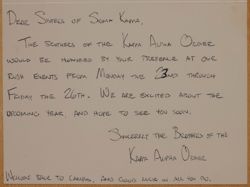 Dear Sisters of Sigma Kappa,
The brothers of the Kappa Alpha Order
would be honored by your presence at our
Rush events from Monday the 22nd through
Friday the 26th. We are excited about the
upcoming year and hope to see you soon.
Sincerely the Brothers of the
Kappa Alpha Order
Welcome back to campus, and good luck in all you do.